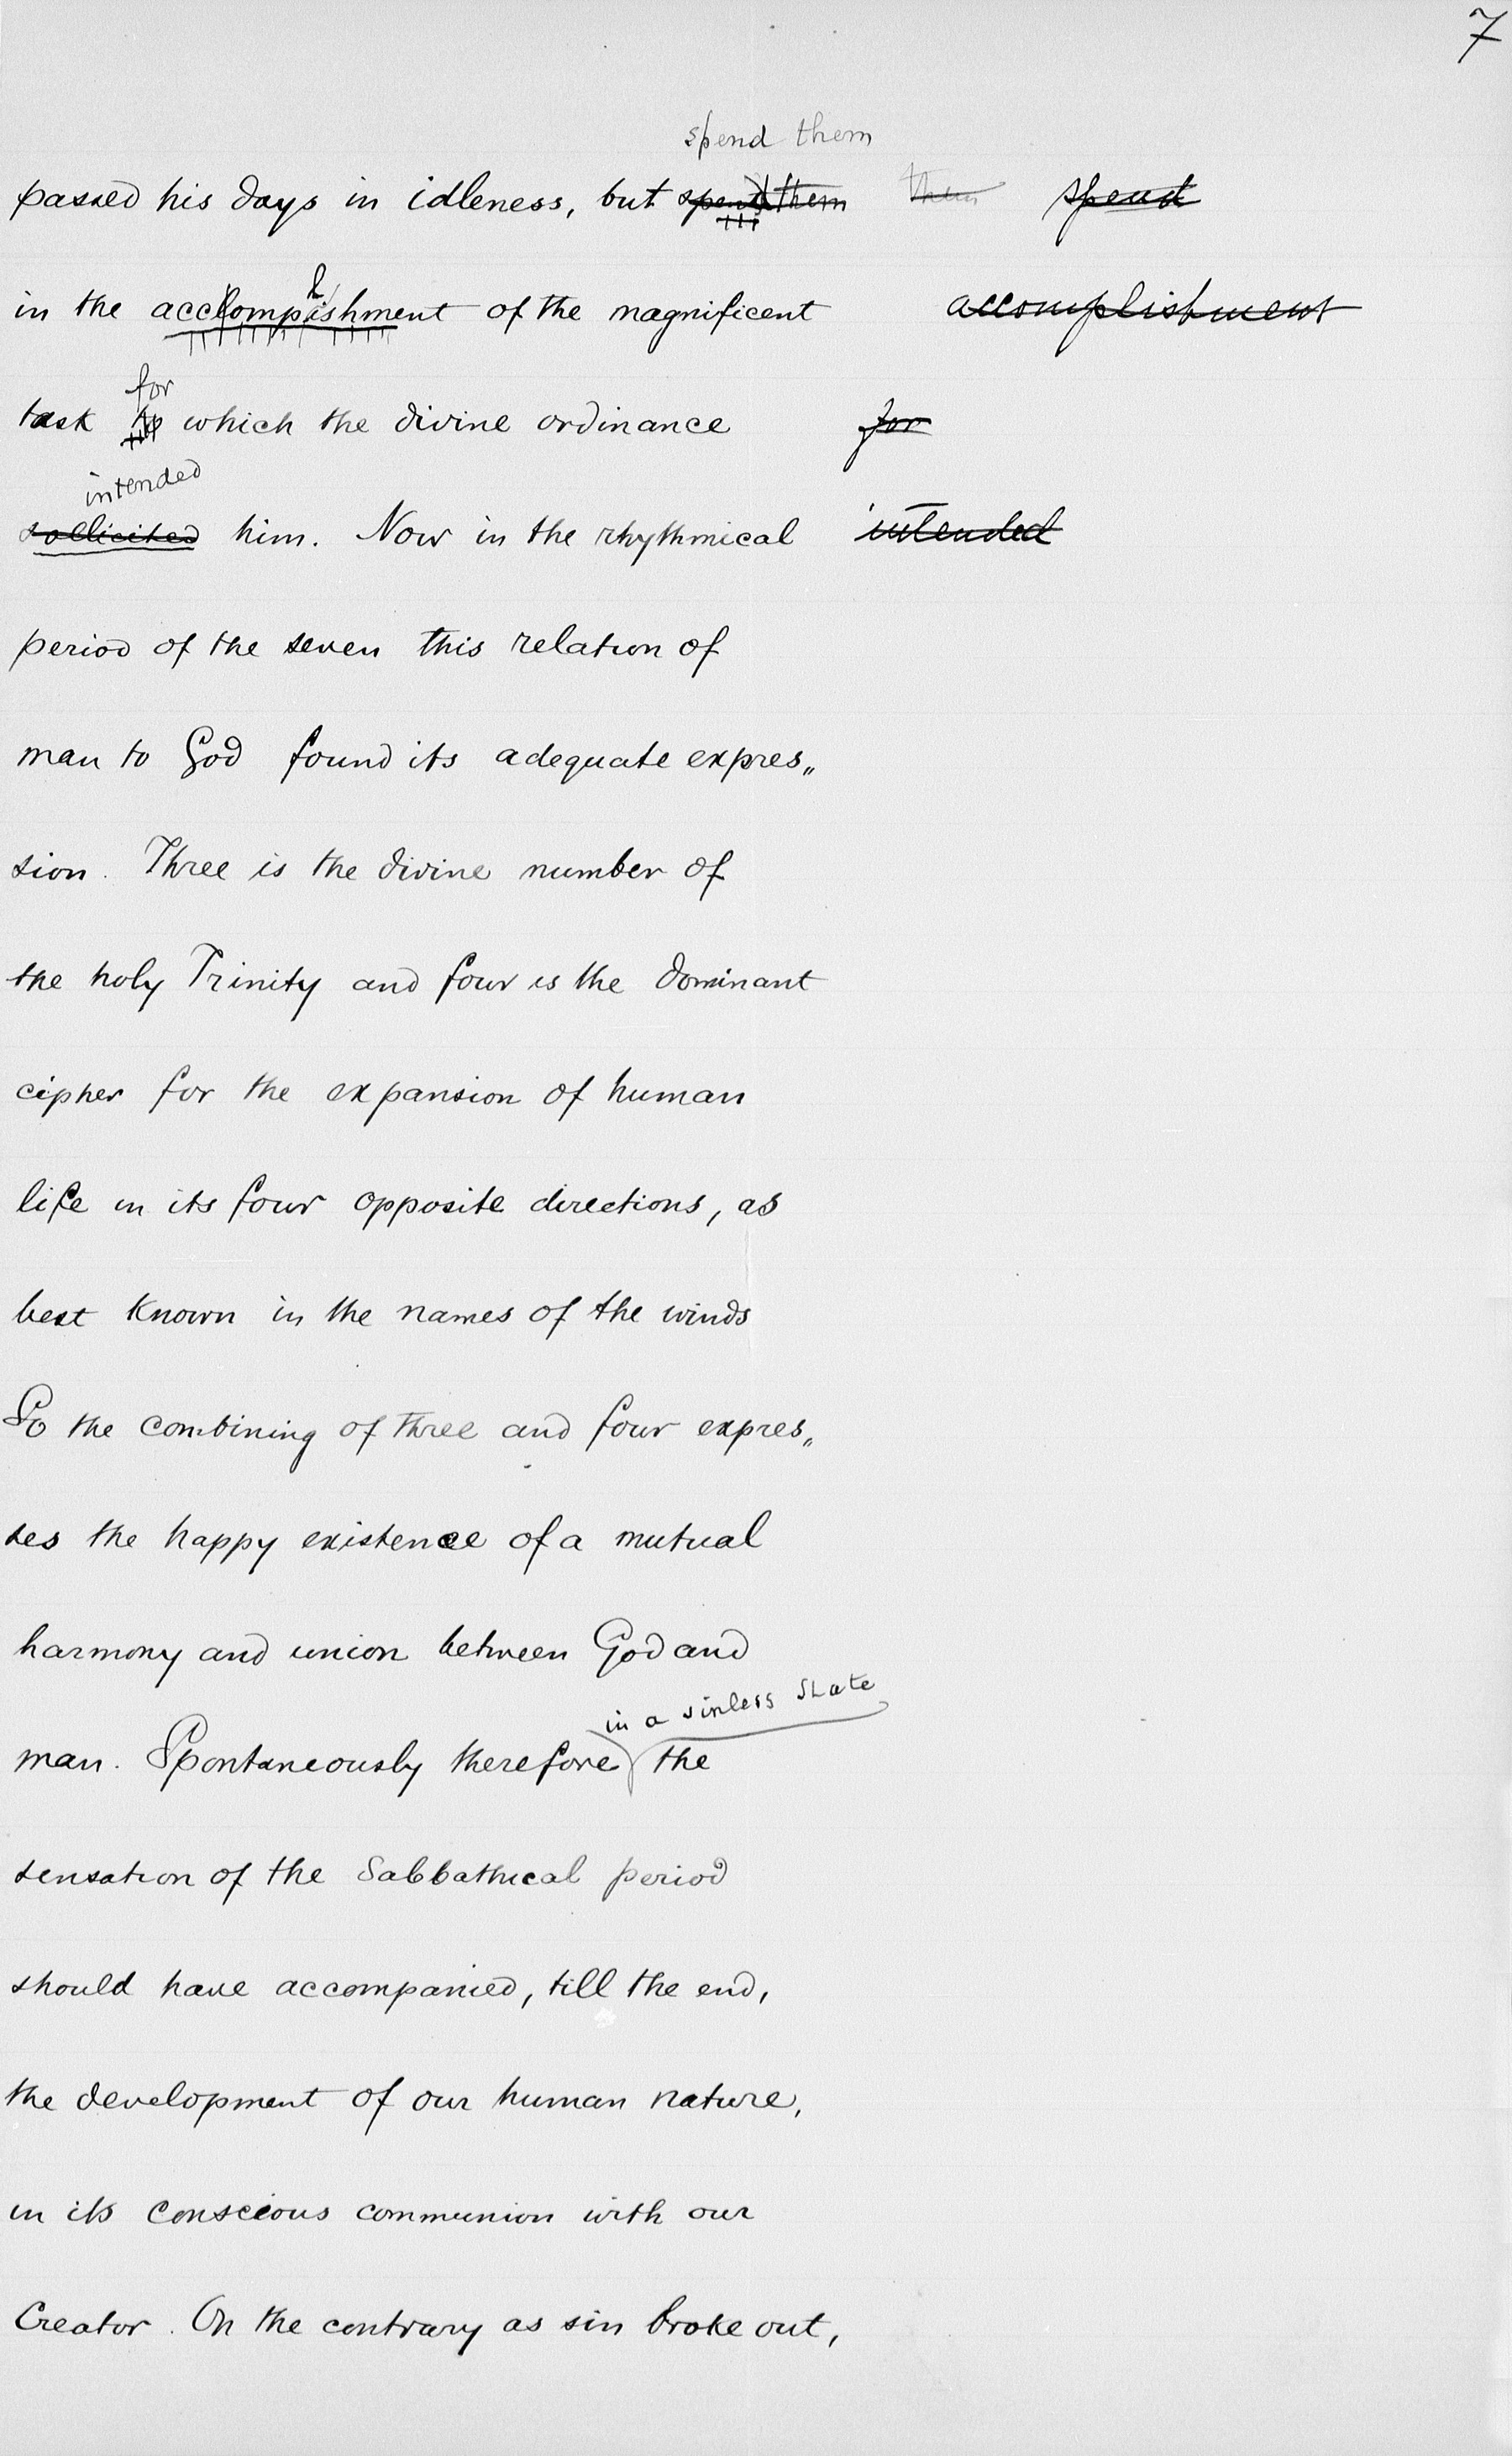 7
spend them
passed his days in idleness, but spend them them spend
in the accomplishment of the magnificent accomplishment
for
task to which the divine ordinance for
intended
sollicited him. Now in the rhythmical intended
period of the seven this relation of
man to God found its adequate expres„
sion. Three is the divine number of
the holy Trinity and four is the dominant
cipher for the expansion of human
life in its four opposite directions, as
best known in the names of the winds
So the combining of three and four expres„
ses the happy existence of a mutual
harmony and union between God and
in a sinless state
man. Spontaneously therefore the
sensation of the Sabbathical period
should have accompanied, till the end,
the development of our human nature,
in its conscious communion with our
Creator. On the contrary as sin broke out,